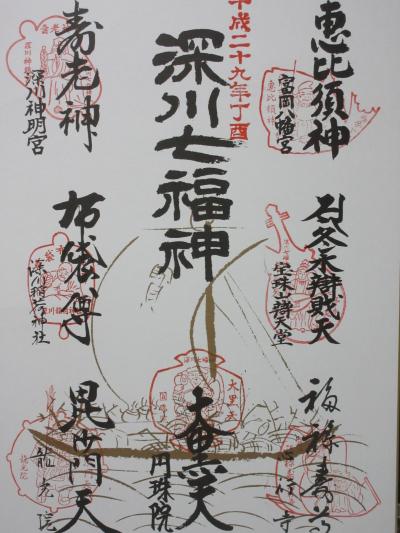 平成二十九年丁酉
深川七福神
恵比須神
富岡八幡宮
冬木弁財天
宝珠山辨天堂
福禄寿尊
心行寺
大黒天
円珠院
毘沙門天
龍光院
布袋尊
深川稲荷神社
寿老神
深川神明宮